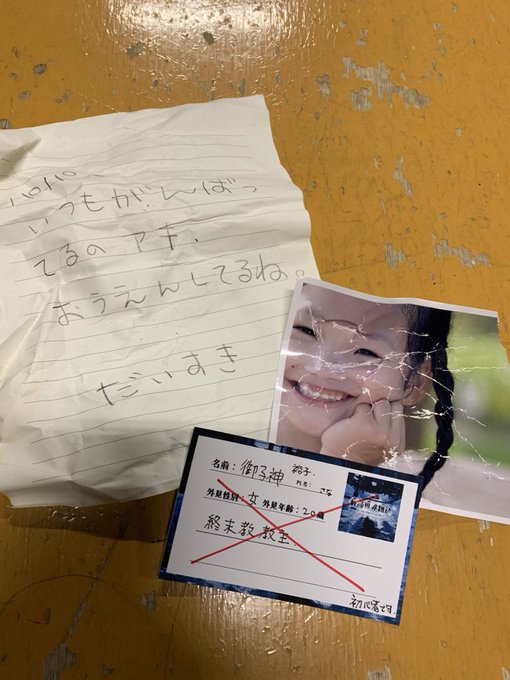 パパ
いつもがんばっ
てるの アキ、
おうえんしてるね。
だいすき
名前:御子神 裕子
PL名: さな
外見性別:女 外見年齢:20歳
終末教 教主
初心者です。